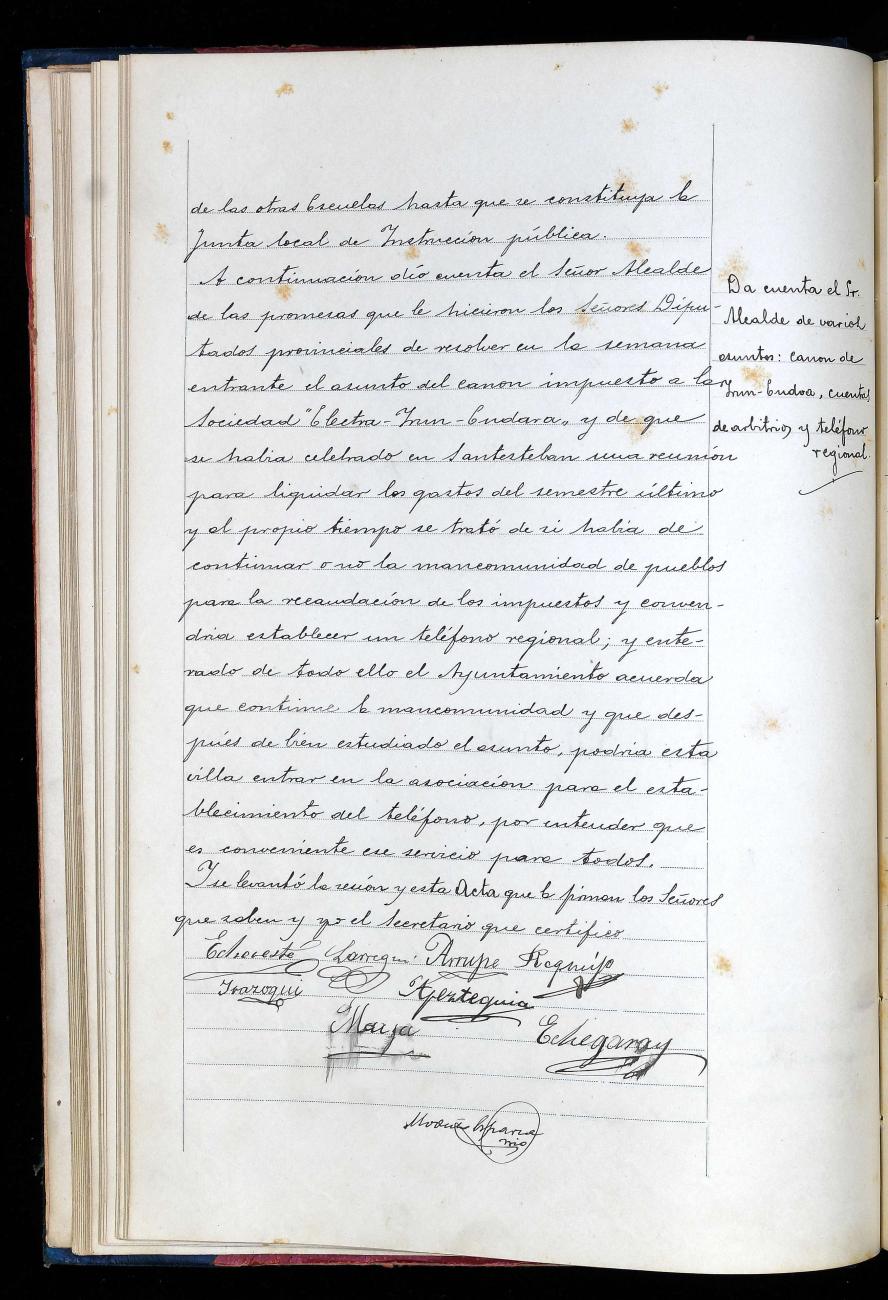 de las otras Escuelas hasta que se constituya la
Junta local de Instrucción pública.
A continuación dió cuenta el Señor Alcalde
de las promesas que le hicieron los Señores Dipu-
tados provinciales de resolver en la semana
entrante el asunto del canon impuesto a la
Sociedad "Electra-Irun-Endara" y de que
se habia celebrado en Santesteban una reunión
para liquidar los gastos del semestre último
y al propio tiempo se trató de si habia de
continuar o no la mancomunidad de pueblos
para la recaudación de los impuestos y conven-
dria establecer un teléfono regional; y ente-
rado de todo ello el Ayuntamiento acuerda
que continue la mancomunidad y que des-
pués de bien estudiado el asunto, podria esta
villa entrar en la asociación para el esta-
blecimiento del teléfono, por entender que
es conveniente ese servicio para todos.
I se levantó la sesión y esta Acta que la firman los Señores
que saben y yo el Secretario que certifico
Echeveste Larregui Arrupe Requijo
Irazoqui Apezteguia
Maya Echegaray
Da cuenta el Sr.
Alcalde de varios
asuntos: canon de
Irun-Endara, cuentas
de arbitrios y teléfono
regional.